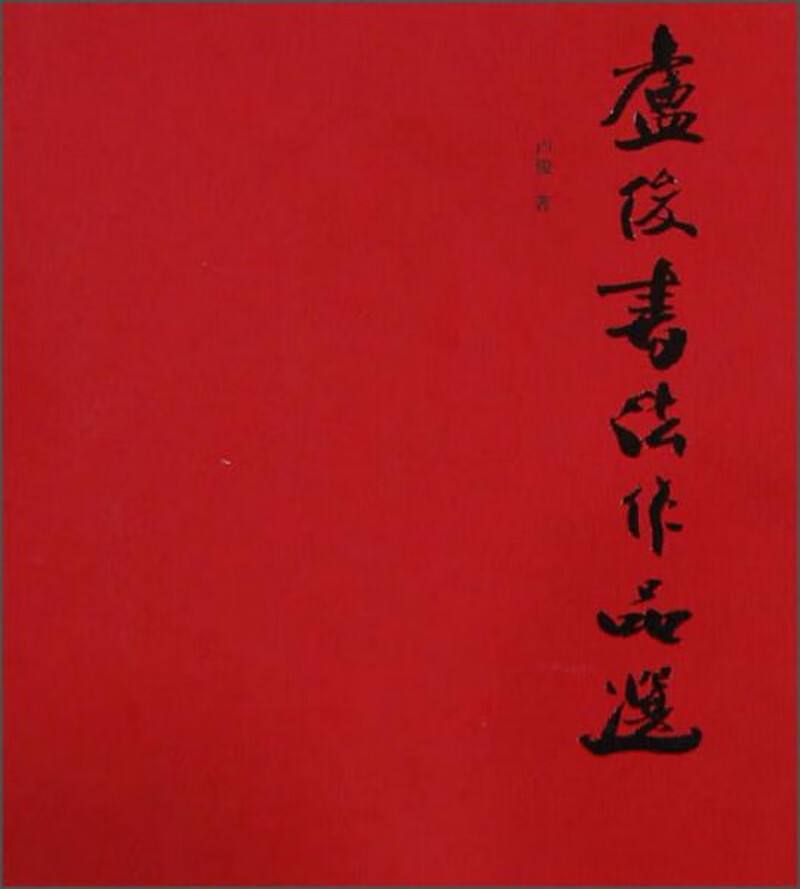 盧俊書法作品選
卢俊 著